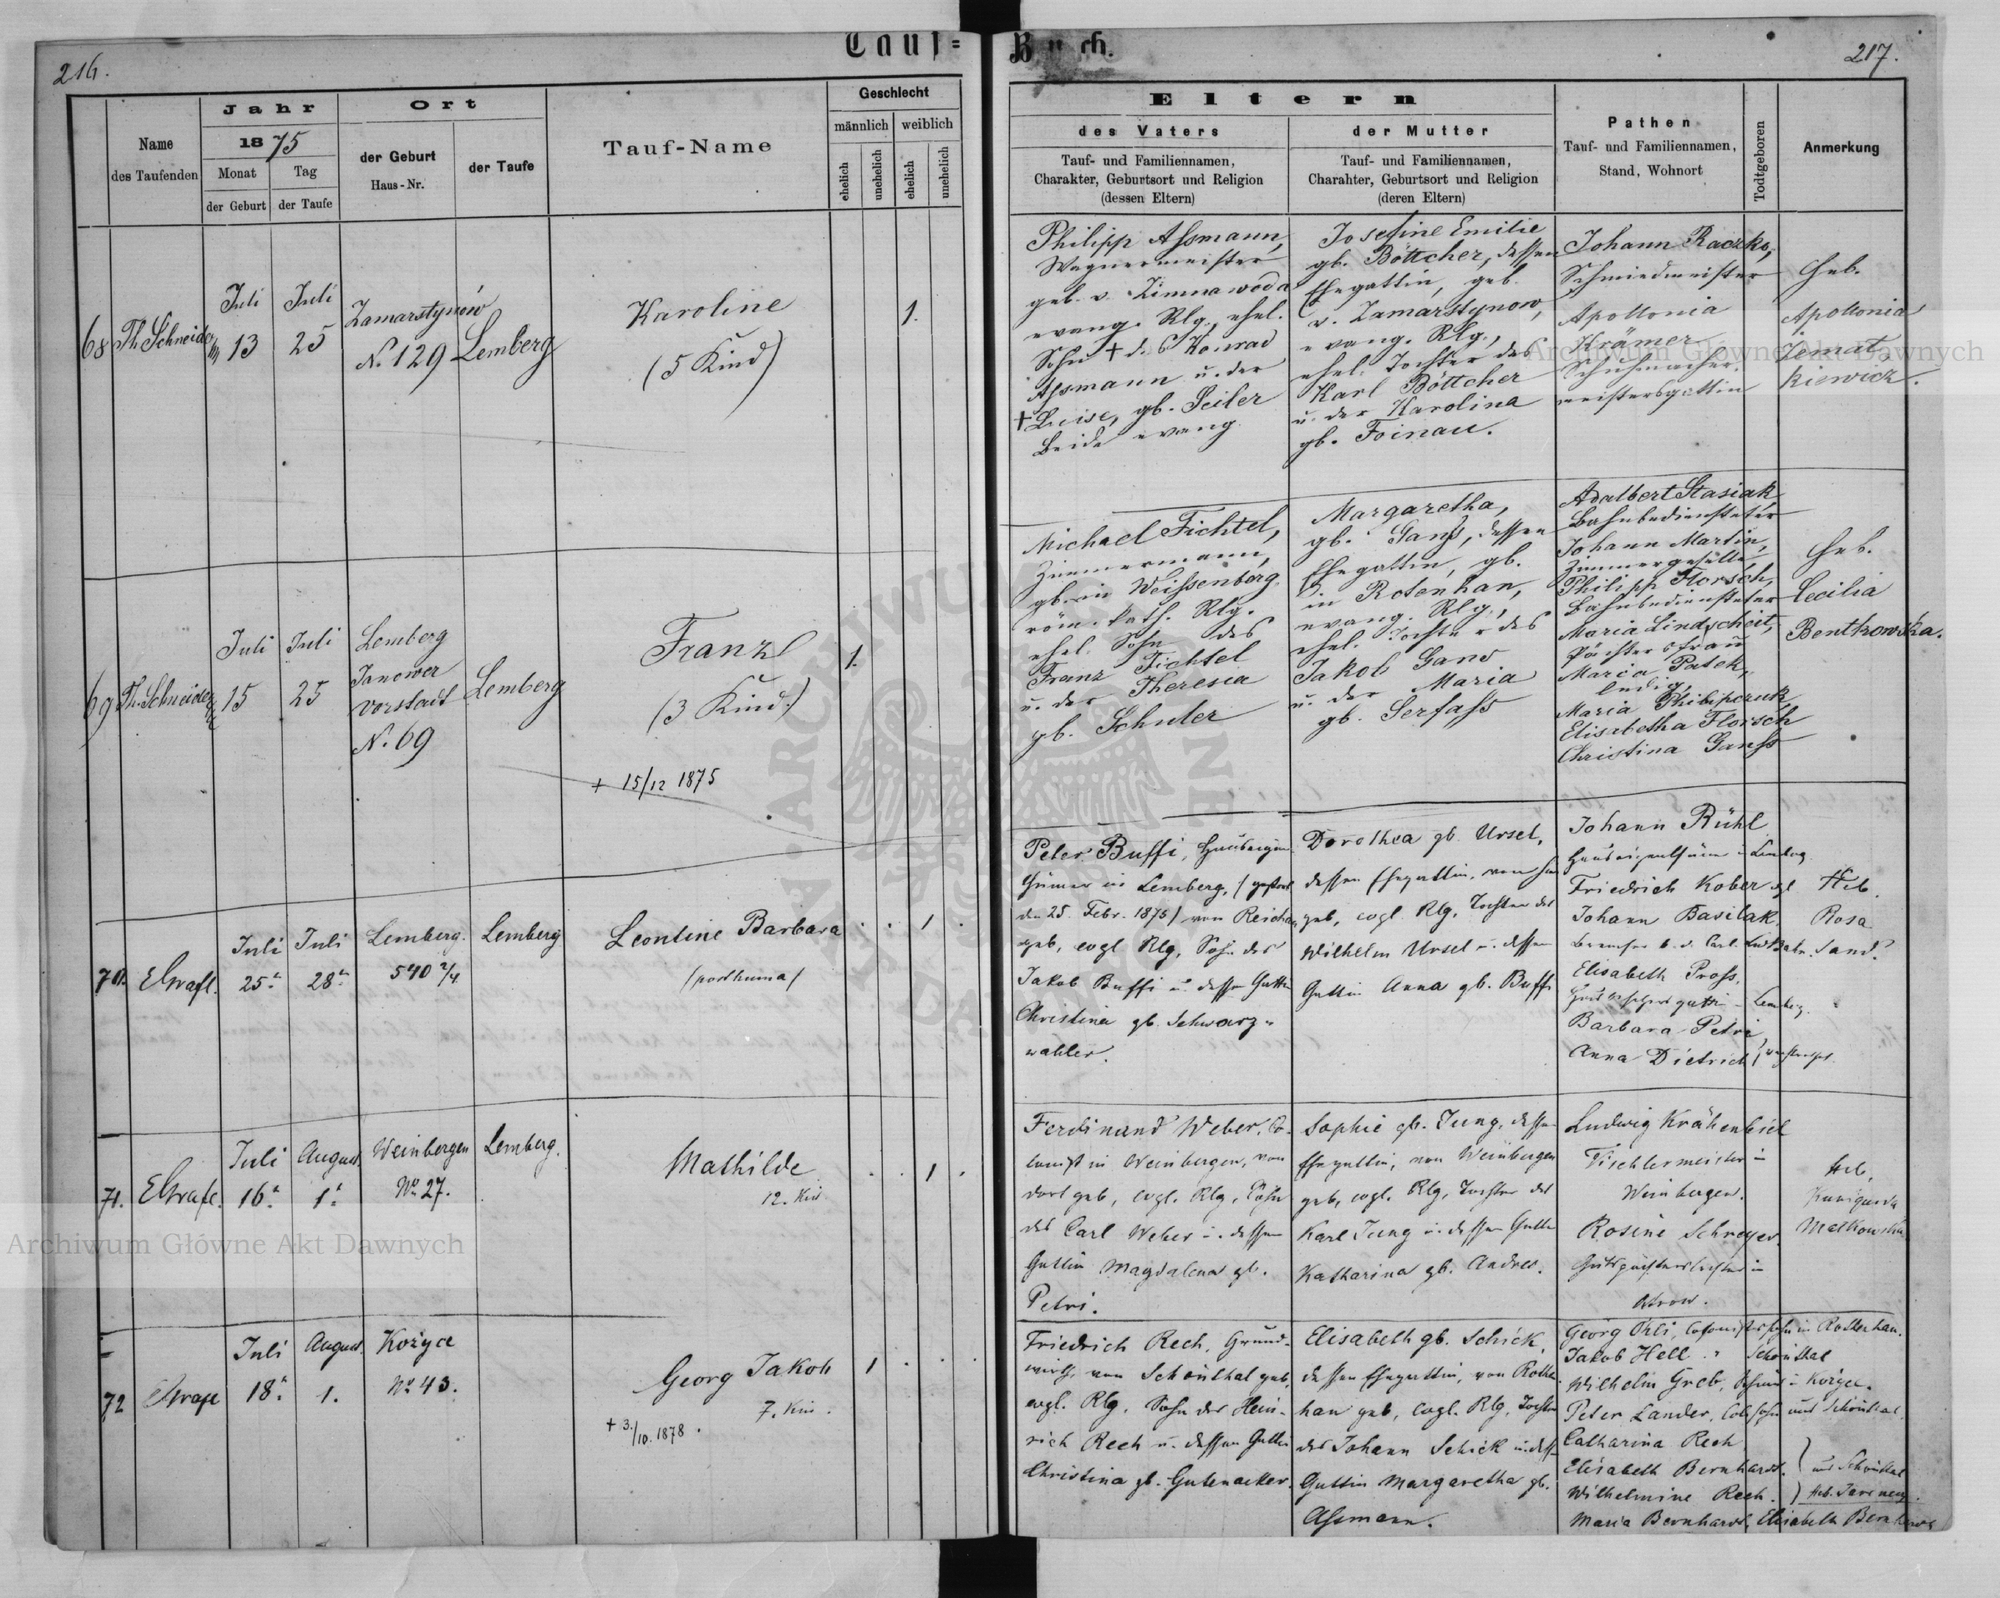 216.
Tauf=
Buch.
217.
Name
des Taufenden
Jahr
1875
Monat
der Geburt
Tag
der Taufe
Ort
der Geburt
Haus-Nr.
der Taufe
Tauf-Name
Geschlecht
männlich
weiblich
ehelich
unehelich
ehelich
unehelich
Eltern
des Vaters
Tauf- und Familiennamen,
Charakter, Geburtsort und Religion
(dessen Eltern)
der Mutter
Tauf- und Familiennamen,
Charahter, Geburtsort und Religion
(deren Eltern)
Pathen
Tauf- und Familiennamen,
Stand, Wohnort
Todtgeboren
Anmerkung
68
Th. Schneider
Juli
13
Juli
25
Zamarstynów
N. 129
Lemberg
Karoline
(5 Kind)
1.
Philipp Assmann,
Wagnermeister
geb. v. Zimnawoda
evang. Rlg., ehel.
Sohn † des Konrad
Assmann u. der
† Luise, gb. Seiler
Beide evang.
Josefine Emilie
gb. Böttcher, dessen
Ehegattin, geb.
v. Zamarstynow,
evang. Rlg.,
ehel. Tochter des
Karl Böttcher
u. der Karolina
gb. Foinau.
Johann Raczko,
Schmiedmeister
Apollonia
Krämer
Schuhmacher-
meistersgattin
Heb.
Apollonia
Ziemat
kiewicz.
69
Th. Schneider
Juli
15
Juli
25
Lemberg
Janower
Vorstadt
N. 69
Lemberg
Franz
(3 Kind.)
+ 15/12 1875
1.
Michael Fichtel,
Zimmermann,
gb. in Weissenberg
röm. kath. Rlg.
ehel. Sohn des
Franz Fichtel
u. der Theresia
gb. Schuler
Margaretha,
gb. Ganß, dessen
Ehegattin, gb.
in Rotenhan,
evang. Rlg.,
ehel. Tochter des
Jakob Gans
u. der Maria
gb. Serfass
Adalbert Stasiak
Bahnbediensteter
Johann Martin,
Zimmergeselle,
Philipp Florsch,
Bahnbediensteter
Maria Lindscheit,
Pächtersfrau
Maria Patck,
ledig,
Maria Philipczuk,
Elisabetha Florsch
Christina Ganss
Heb.
Cecilia
Bentkowska.
70.
EGrafl.
Juli
25.
Juli
28.
Lemberg.
540 2/4
Lemberg
Leontine Barbara
/posthuma/
1
Peter Buffi, Hauseigen-
thümer in Lemberg, /gestorb
den 25. Febr. 1875/ von Reichau
geb, evgl Rlg, Sohn des
Jakob Buffi u. dessen Gattin
Christina gb. Schwarz-
wahler.
Dorothea gb. Ursel,
dessen Ehegattin, von
geb, evgl. Rlg, Tochter des
Wilhelm Ursel u. dessen
Gattin Anna gb. Buffi
Johann Rühl
Hauseigenthümer in Lemberg
Friedrich Kober
Johann Basilak
Beamter b. d. Carl. Ludw Bahn.
Elisabeth Pross,
Lemberg.
Barbara Petri
Anna Dietrich
Heb.
Rosa
Sand.
71.
EGrafe.
Juli
16.
August
1.
Weinbergen
No 27.
Lemberg.
Mathilde
12. Kin
1
Ferdinand Weber, Co-
lonist in Weinbergen, von
dort geb, evgl. Rlg, Sohn
des Carl Weber u. dessen
Gattin Magdalena gb.
Petri.
Sophie gb. Jung, dessen
Ehegattin, von Weinbergen
geb, evgl. Rlg, Tochter des
Karl Jung u. dessen Gattin
Katharina gb. Andres.
Ludwig Krähenbiel
Tischlermeister in
Weinbergen.
Rosine Schreyer
Gutspächterstochter in
Heb.
Kunigunda
Malkowska
72
EGrafe
Juli
18.
August
1.
Kożyce
No 43.
Georg Jakob
7. Kin.
+ 3./10. 1878.
1
Friedrich Rech, Grund-
wirth, von Schönthal geb,
evgl. Rlg, Sohn des Hein-
rich Rech u. dessen Gattin
Christina gb. Gutenacker.
Elisabeth gb. Schick,
dessen Ehegattin, von Rotten-
han geb, evgl. Rlg, Tochter
des Johann Schick u. dessen
Gattin Margaretha gb.
Assmann.
Georg Orli, Colonistensohn in Rottenhan.
Jakob Hell " Schönthal
Wilhelm Greb, in Kożyce.
Peter Lander, aus Schönthal.
Catharina Rech
Elisabeth Bernhardt. } aus Schönthal
Wilhelmine Rech.
Maria Bernhardt, Elisabeth Bernhardt
Archiwum Główne Akt Dawnych
Archiwum Główne Akt Dawnych